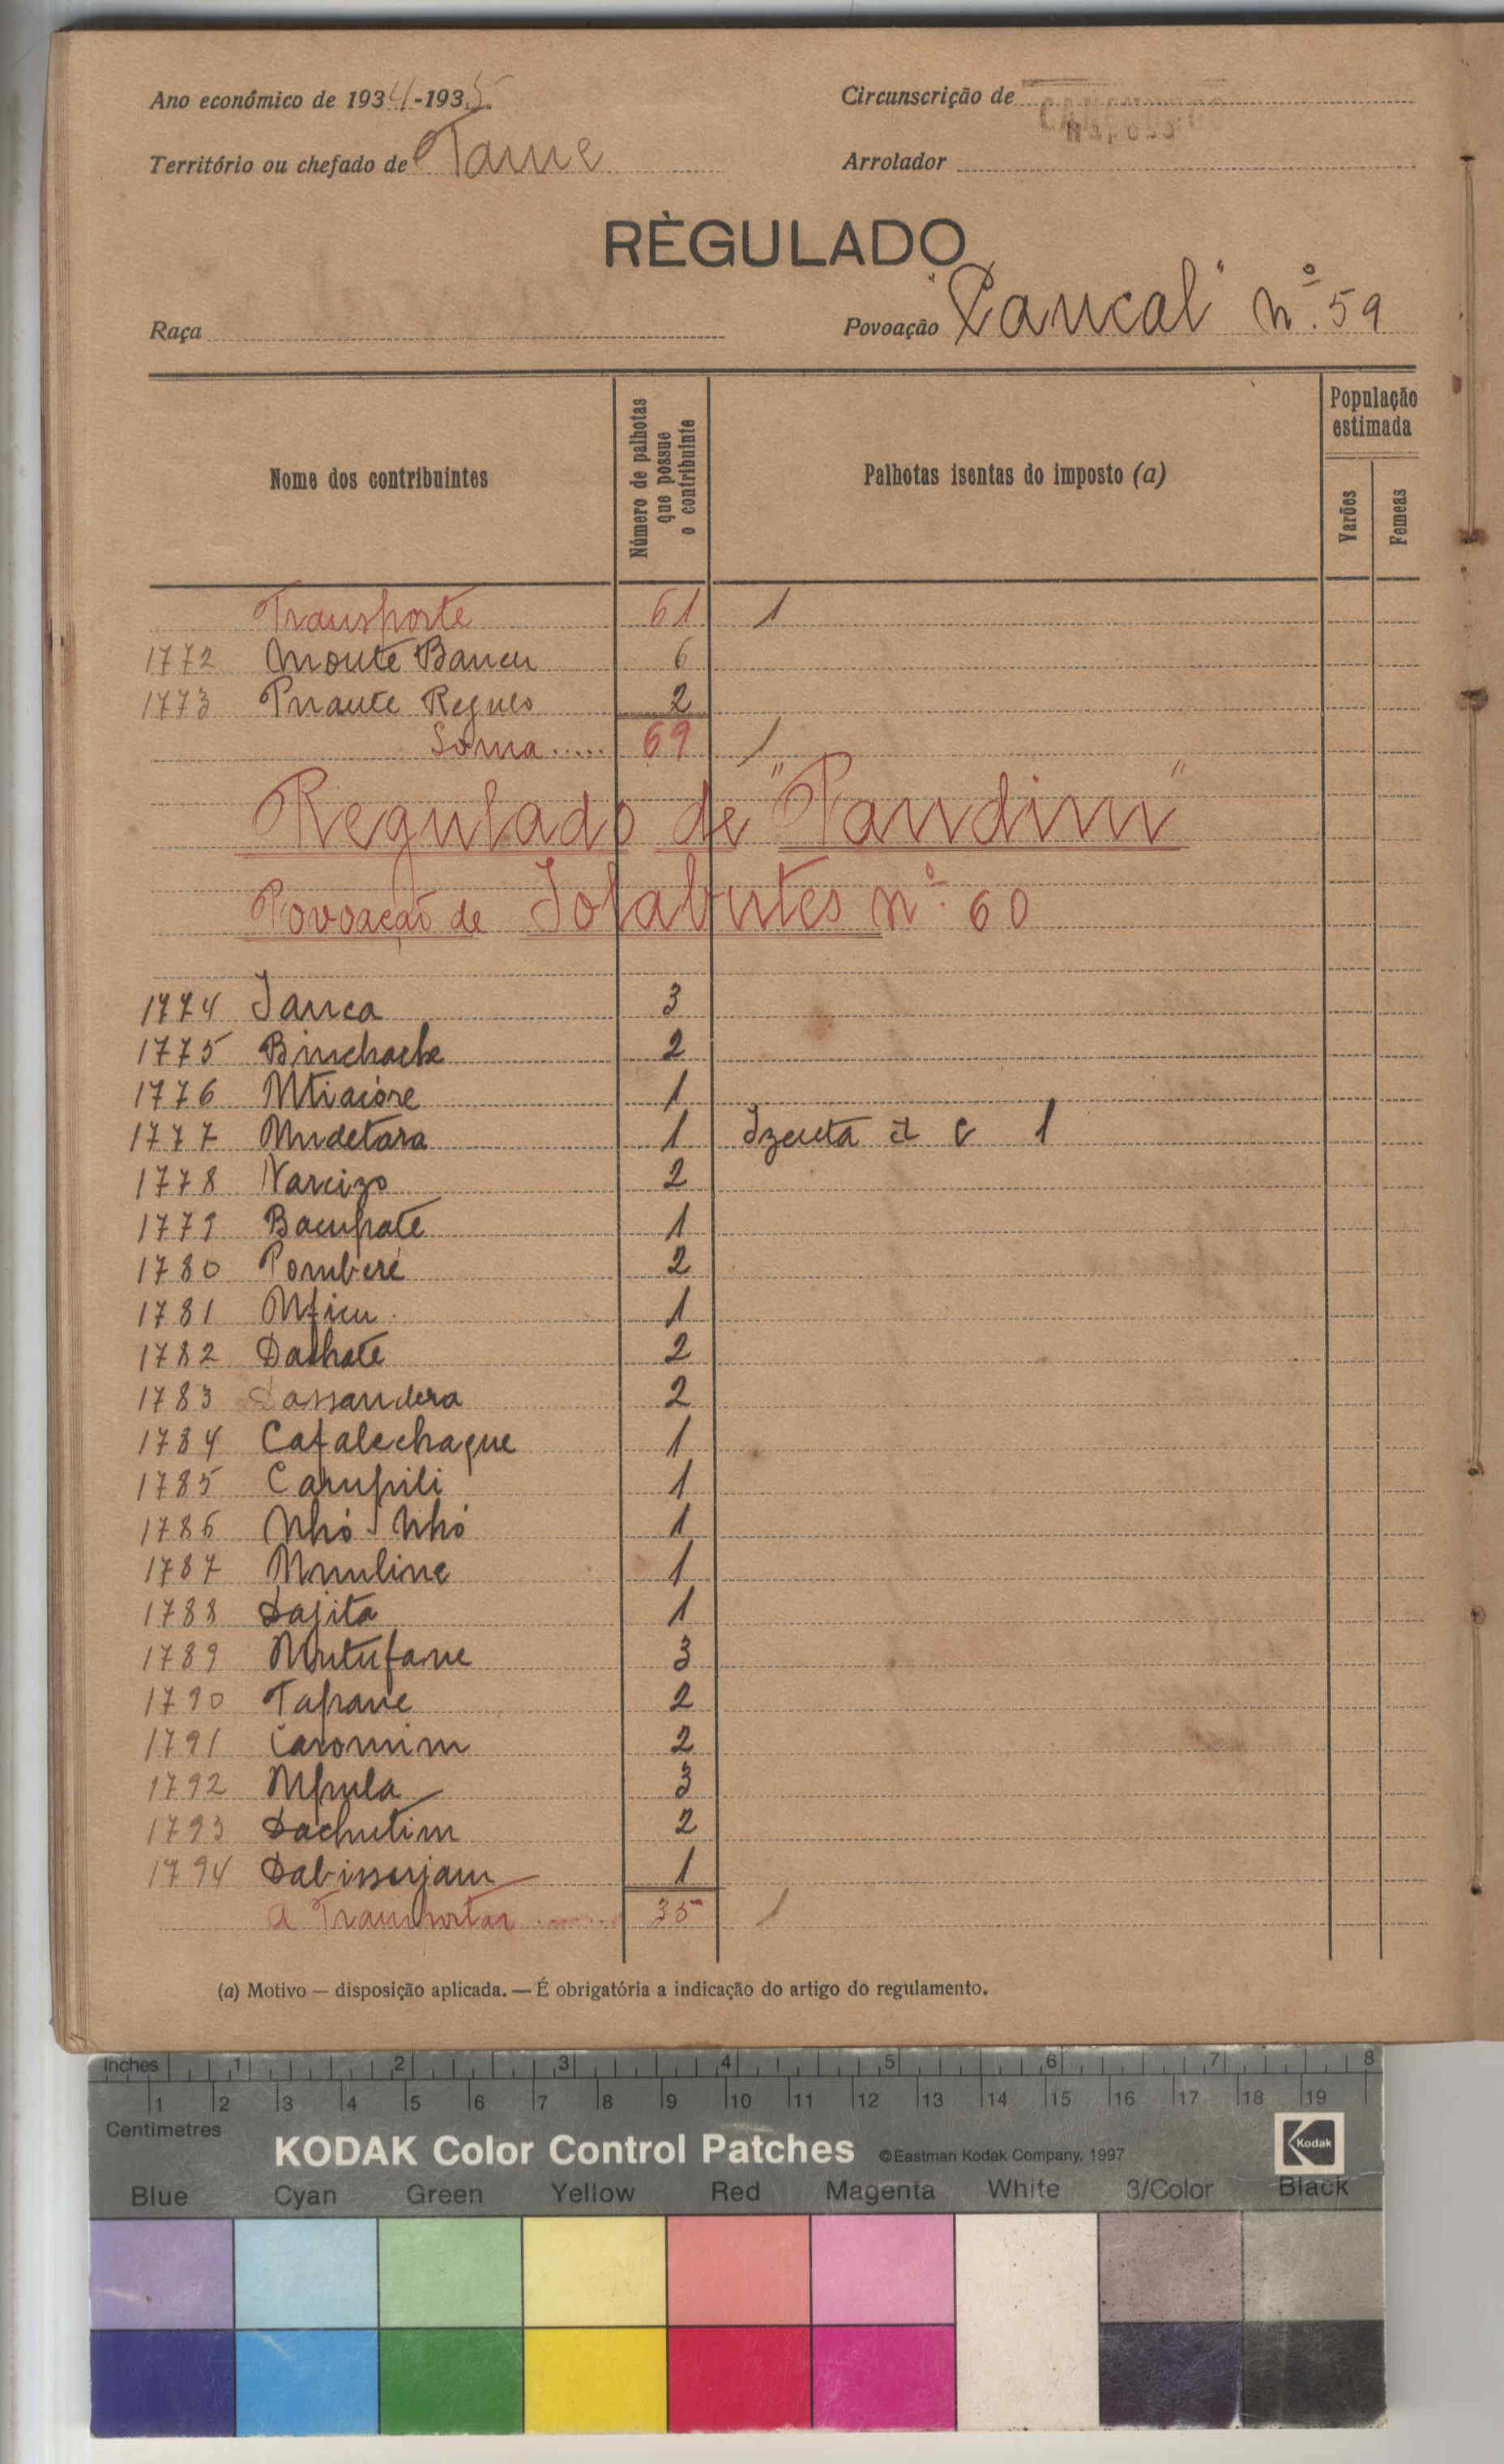 Ano económico de 1934-1935
Circunscrição de
Território ou chefado de Tame
Arrolador
RÈGULADO
Raça
Povoação "Caucal" nº. 59
Nome dos contribuintes
Número de palhotas que possue o contribuinte
Palhotas isentas do imposto (a)
População estimada
Varões
Femeas
Transporte 61 1
1772 Monte Bancu 6
1773 2
Soma..... 69 1
Regulado de "Pandim"
Povoação de Jolabutes nº. 60
1774 Janca 3
1775 2
1776 Mtiaióre 1
1777 Mudetara 1 Izenta 1
1778 Narcizo 2
1779 Bacupate 1
1780 Pomberé 2
1781 Mficu 1
1782 2
1783 Dassandera 2
1784 Cafalechaque 1
1785 Carupili 1
1786 Nhó Nhó 1
1787 Mmuline 1
1788 Dajita 1
1789 Mutufane 3
1790 Tapane 2
1791 Caromim 2
1792 Mpula 3
1793 Dachutim 2
1794 1
A Transportar 35 1
(a) Motivo — disposição aplicada. — É obrigatória a indicação do artigo do regulamento.
Inches 1 2 3 4 5 6 7 8
1 2 3 4 5 6 7 8 9 10 11 12 13 14 15 16 17 18 19
Centimetres
KODAK Color Control Patches ©Eastman Kodak Company, 1997 Kodak
Blue Cyan Green Yellow Red Magenta White 3/Color Black